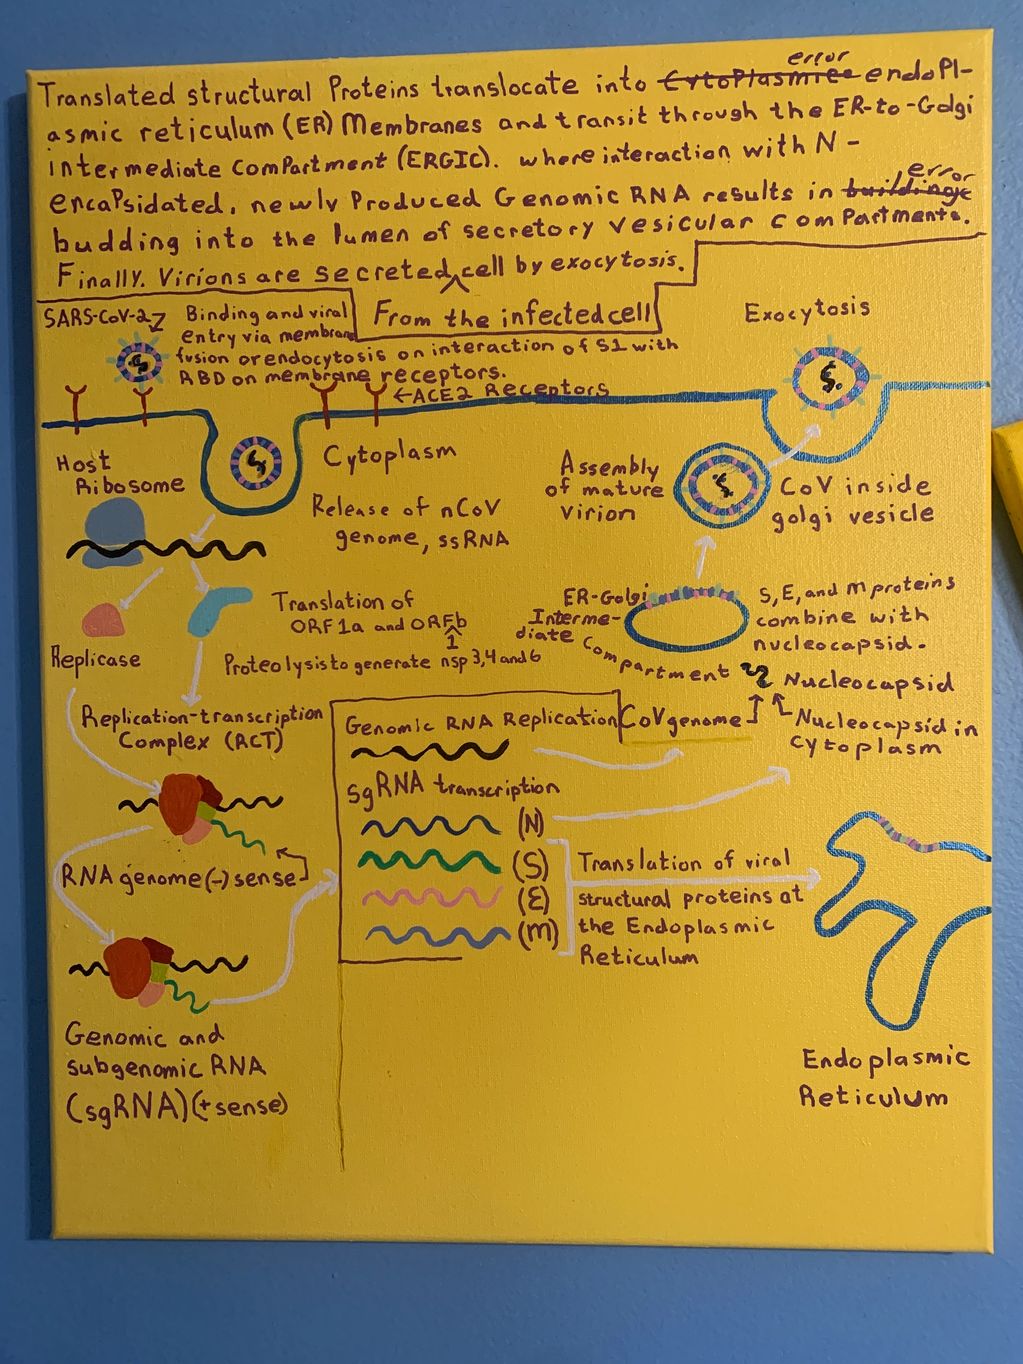 error
Translated structural Proteins translocate into Cytoplasmice endopl-
asmic reticulum (ER) Membranes and transit through the ER-to-Golgi
intermediate comPartment (ERGIC). where interaction with N-
error
encaPsidated, newly Produced Genomic RNA results in buildingc
budding into the lumen of secretory vesicular comPartments.
Finally. Virions are secreted ^ cell by exocytosis.
From the infected cell
SARS-CoV-2
Binding and viral
entry via membrane
fusion or endocytosis on interaction of S1 with
RBD on membrane receptors.
←ACE2 Receptors
Exocytosis
Host
Ribosome
Cytoplasm
Release of nCoV
genome, ssRNA
Assembly
of mature
virion
CoV inside
golgi vesicle
Translation of
ORF1a and ORFb
1
Proteolysis to generate nsp 3,4 and 6
Replicase
ER-Golgi
Interme-
diate compartment
S, E, and m proteins
combine with
nucleocapsid.
Nucleocapsid
Nucleocapsid in
cytoplasm
Replication-transcription
Complex (RCT)
Genomic RNA Replication
CoV genome
sgRNA transcription
(N)
(S)
(E)
(m)
Translation of viral
structural proteins at
the Endoplasmic
Reticulum
RNA genome (-) sense
Genomic and
subgenomic RNA
(sgRNA) (+ sense)
Endoplasmic
Reticulum